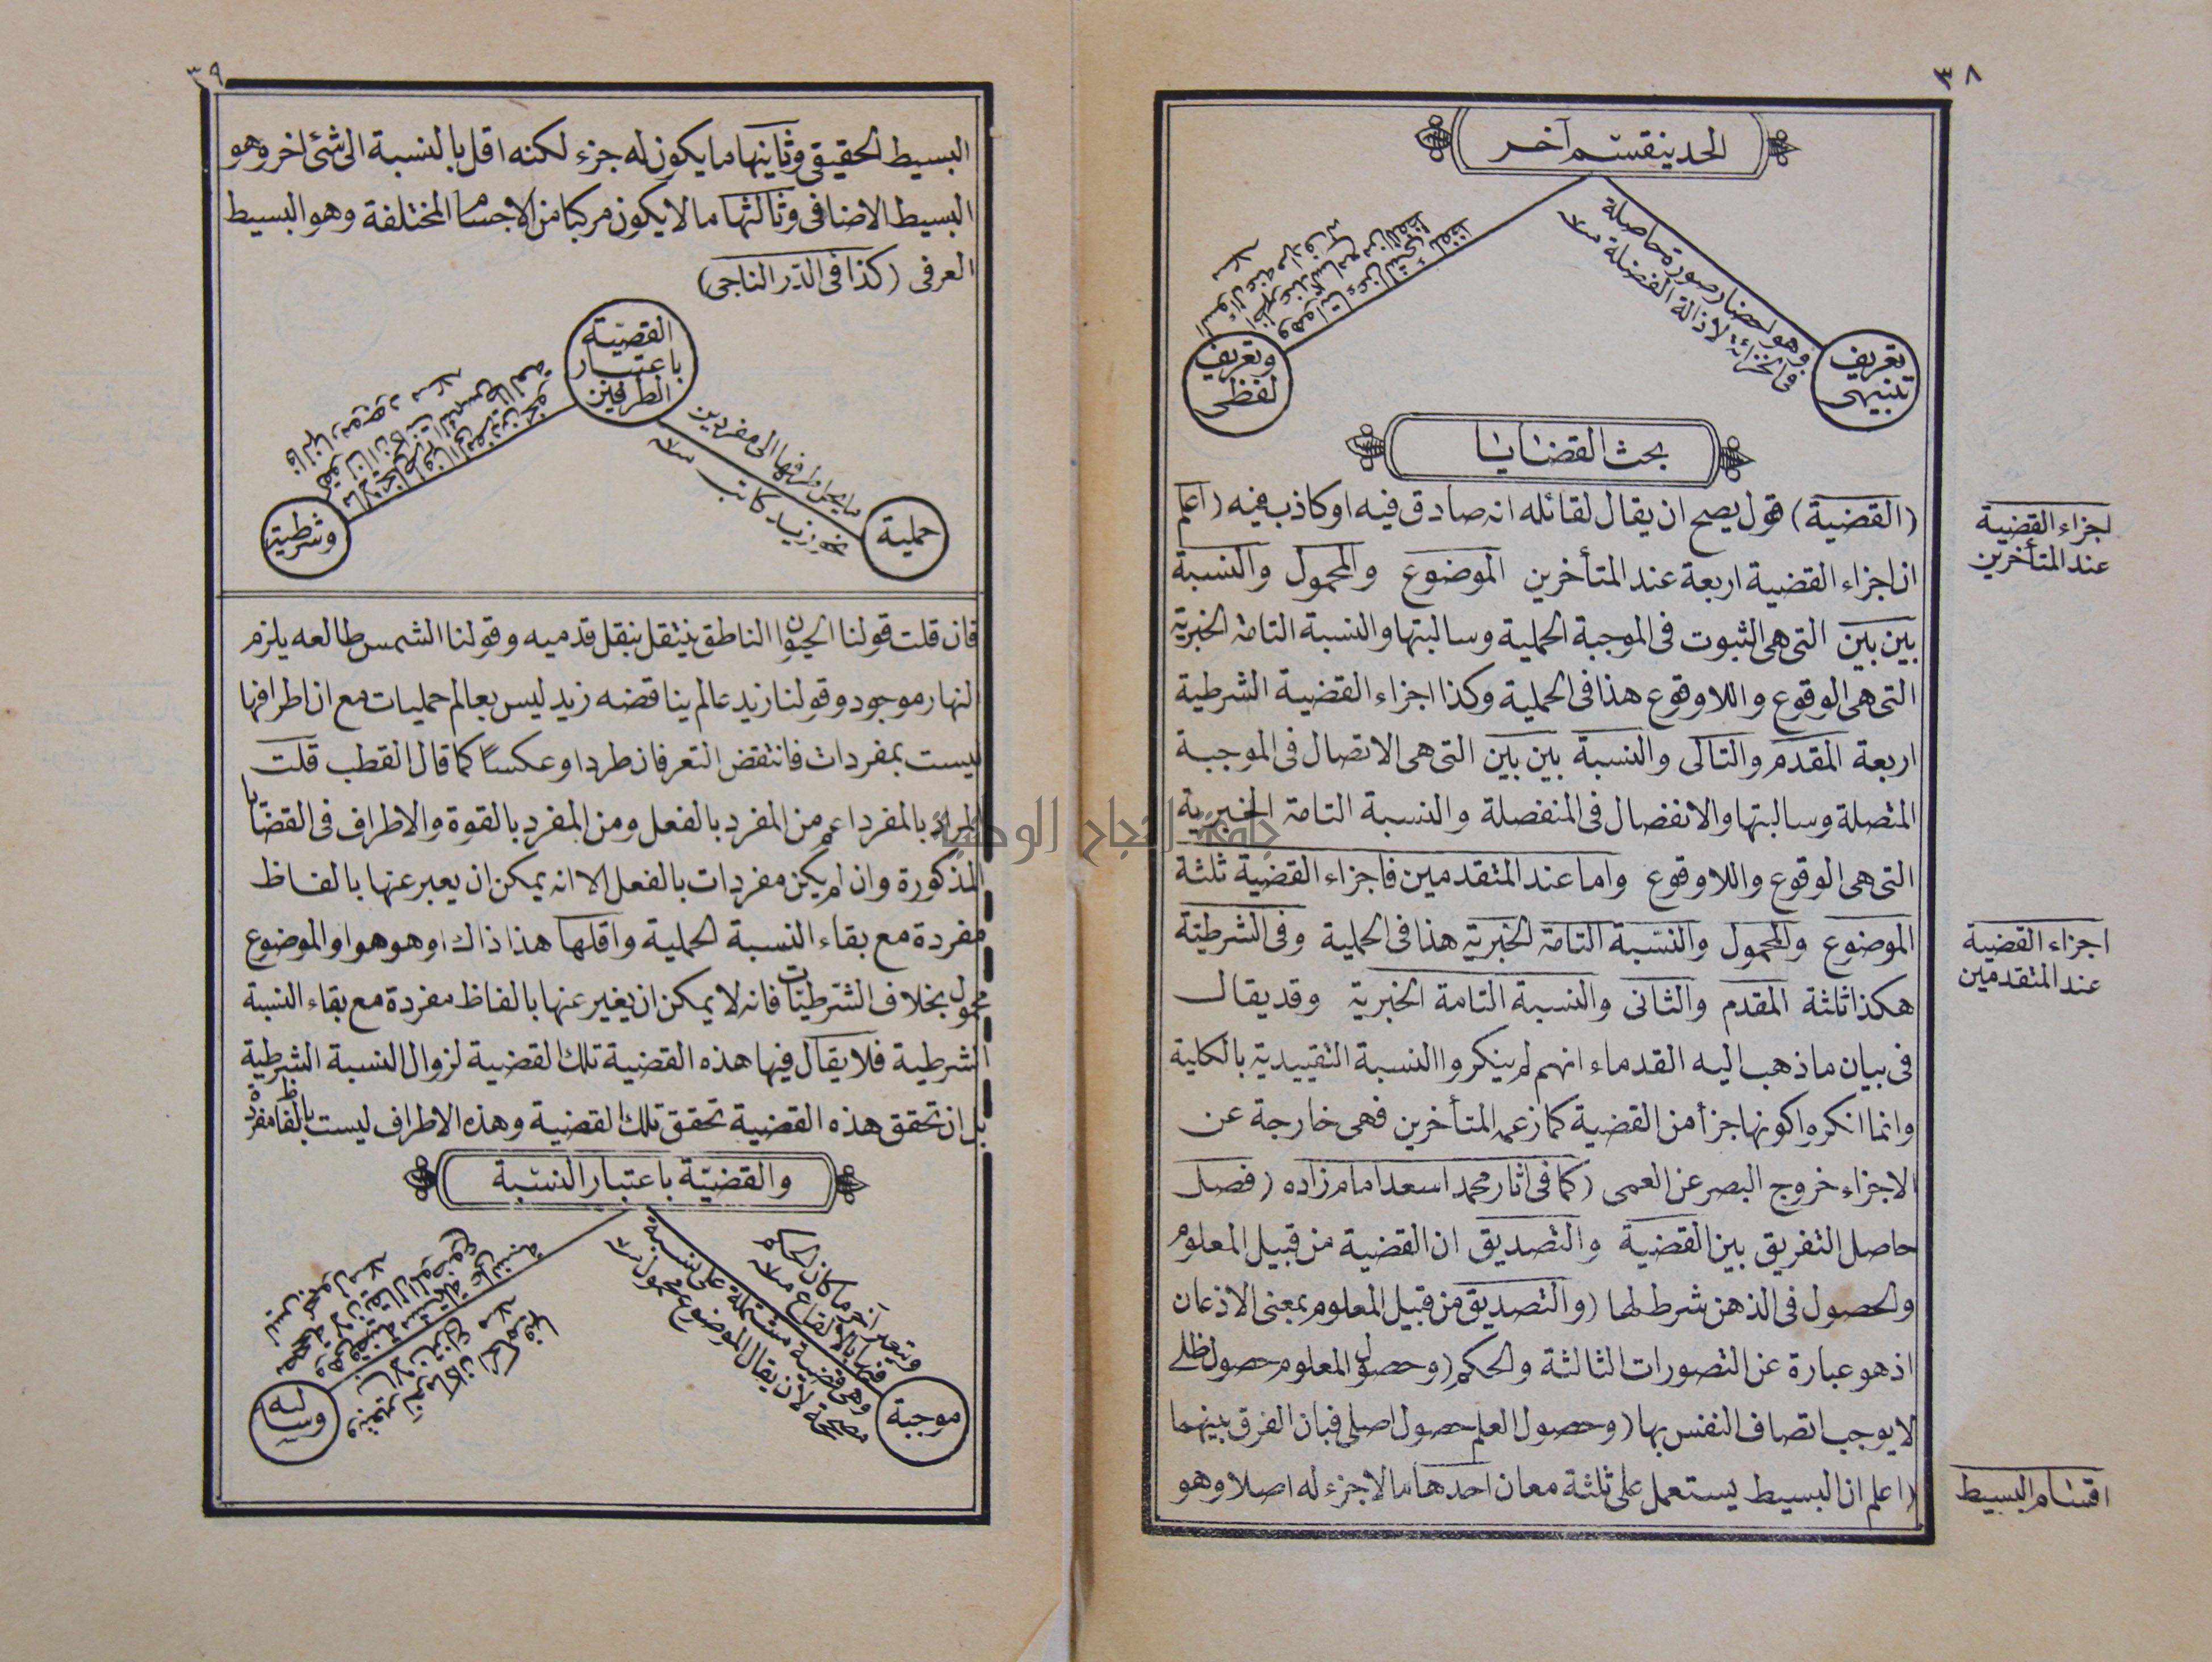 ٣٨
الحد ينقسم آخر
وهو احضار صورة حاصلة
فى الخزانة لازالة الفضلة
تعريف
تنبيهى
وتعريف
لفظى
بحث القضايا
(القضية) قول يصح ان يقال لقائله انه صادق فيه او كاذب فيه (اعلم
ان اجزاء القضية اربعة عند المتأخرين الموضوع والمحمول والنسبة
بين بين التى هى الثبوت فى الموجبة الحملية وسالبتها والنسبة التامة الخبرية
التى هى الوقوع واللاوقوع هذا فى الحملية وكذا اجزاء القضية الشرطية
اربعة المقدم والتالى والنسبة بين بين التى هى الاتصال فى الموجبة
المتصلة وسالبتها والانفصال فى المنفصلة والنسبة التامة الخبرية
التى هى الوقوع واللاوقوع واما عند المتقدمين فاجزاء القضية ثلثة
الموضوع والمحمول والنسبة التامة الخبرية هذا فى الحملية وفى الشرطية
هكذا ثلثة المقدم والثانى والنسبة التامة الخبرية وقد يقال
فى بيان ما ذهب اليه القدماء انهم لم ينكروا النسبة التقييدية بالكلية
وانما انكروا كونها جزأ من القضية كما زعمه المتأخرين فهى خارجة عن
الاجزاء خروج البصر عن العمى (كما فى اثار محمد اسعد امام زاده (فصل
حاصل التفريق بين القضية والتصديق ان القضية من قبيل المعلوم
والحصول فى الذهن شرط لها (والتصديق من قبيل المعلوم بمعنى الاذعان
اذ هو عبارة عن التصورات الثالثة والحكم (وحصول المعلوم حصول ظلى
لا يوجب اتصاف النفس بها (وحصول العلم حصول اصلى فبان الفرق بينهما
(اعلم ان البسيط يستعمل على ثلثة معان احدها ما لا جزء له اصلا وهو
اجزاء القضية
عند المتأخرين
اجزاء القضية
عند المتقدمين
اقسام البسيط
٣٩
البسيط الحقيقى وثانيها ما يكون له جزء لكنه اقل بالنسبة الى شئ اخر وهو
البسيط الاضافى وثالثها ما لا يكون مركبا من الاجسام المختلفة وهو البسيط
العرفى (كذا فى الدر الناجى)
القضية
باعتبار
الطرفين
ما ينحل طرفها الى مفردين
نحو زيد كاتب
حملية
وشرطية
فان قلت قولنا الحيوان الناطق ينتقل بنقل قدميه وقولنا الشمس طالعه يلزم
النهار موجود وقولنا زيد عالم يناقضه زيد ليس بعالم حمليات مع ان اطرافها
ليست بمفردات فانتقض التعرفان طردا وعكسًا كما قال القطب قلت
المراد بالمفرد اعم من المفرد بالفعل ومن المفرد بالقوة والاطراف فى القضايا
المذكورة وان لم يكن مفردات بالفعل الا انه يمكن ان يعبر عنها بالفاظ
مفردة مع بقاء النسبة الحملية واقلها هذا ذاك او هو هو او الموضوع
محمول بخلاف الشرطيات فانه لا يمكن ان يغير عنها بالفاظ مفردة مع بقاء النسبة
الشرطية فلا يقال فيها هذه القضية تلك القضية لزوال النسبة الشرطية
بل ان تحقق هذه القضية تحقق تلك القضية وهذه الاطراف ليست بالفاظ مفردة
والقضية باعتبار النسبة
وهى قضية مشتملة على نسبة
مصححة لان يقال الموضوع محمول
موجبة
وسالبه
جامعة النجاح الوطنية